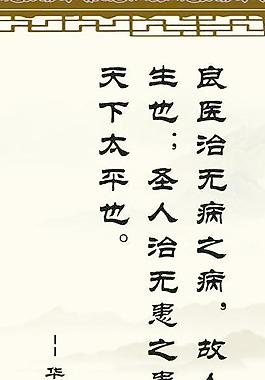 良医治无病之病，故人
生也；圣人治无患之患
天下太平也。
--华